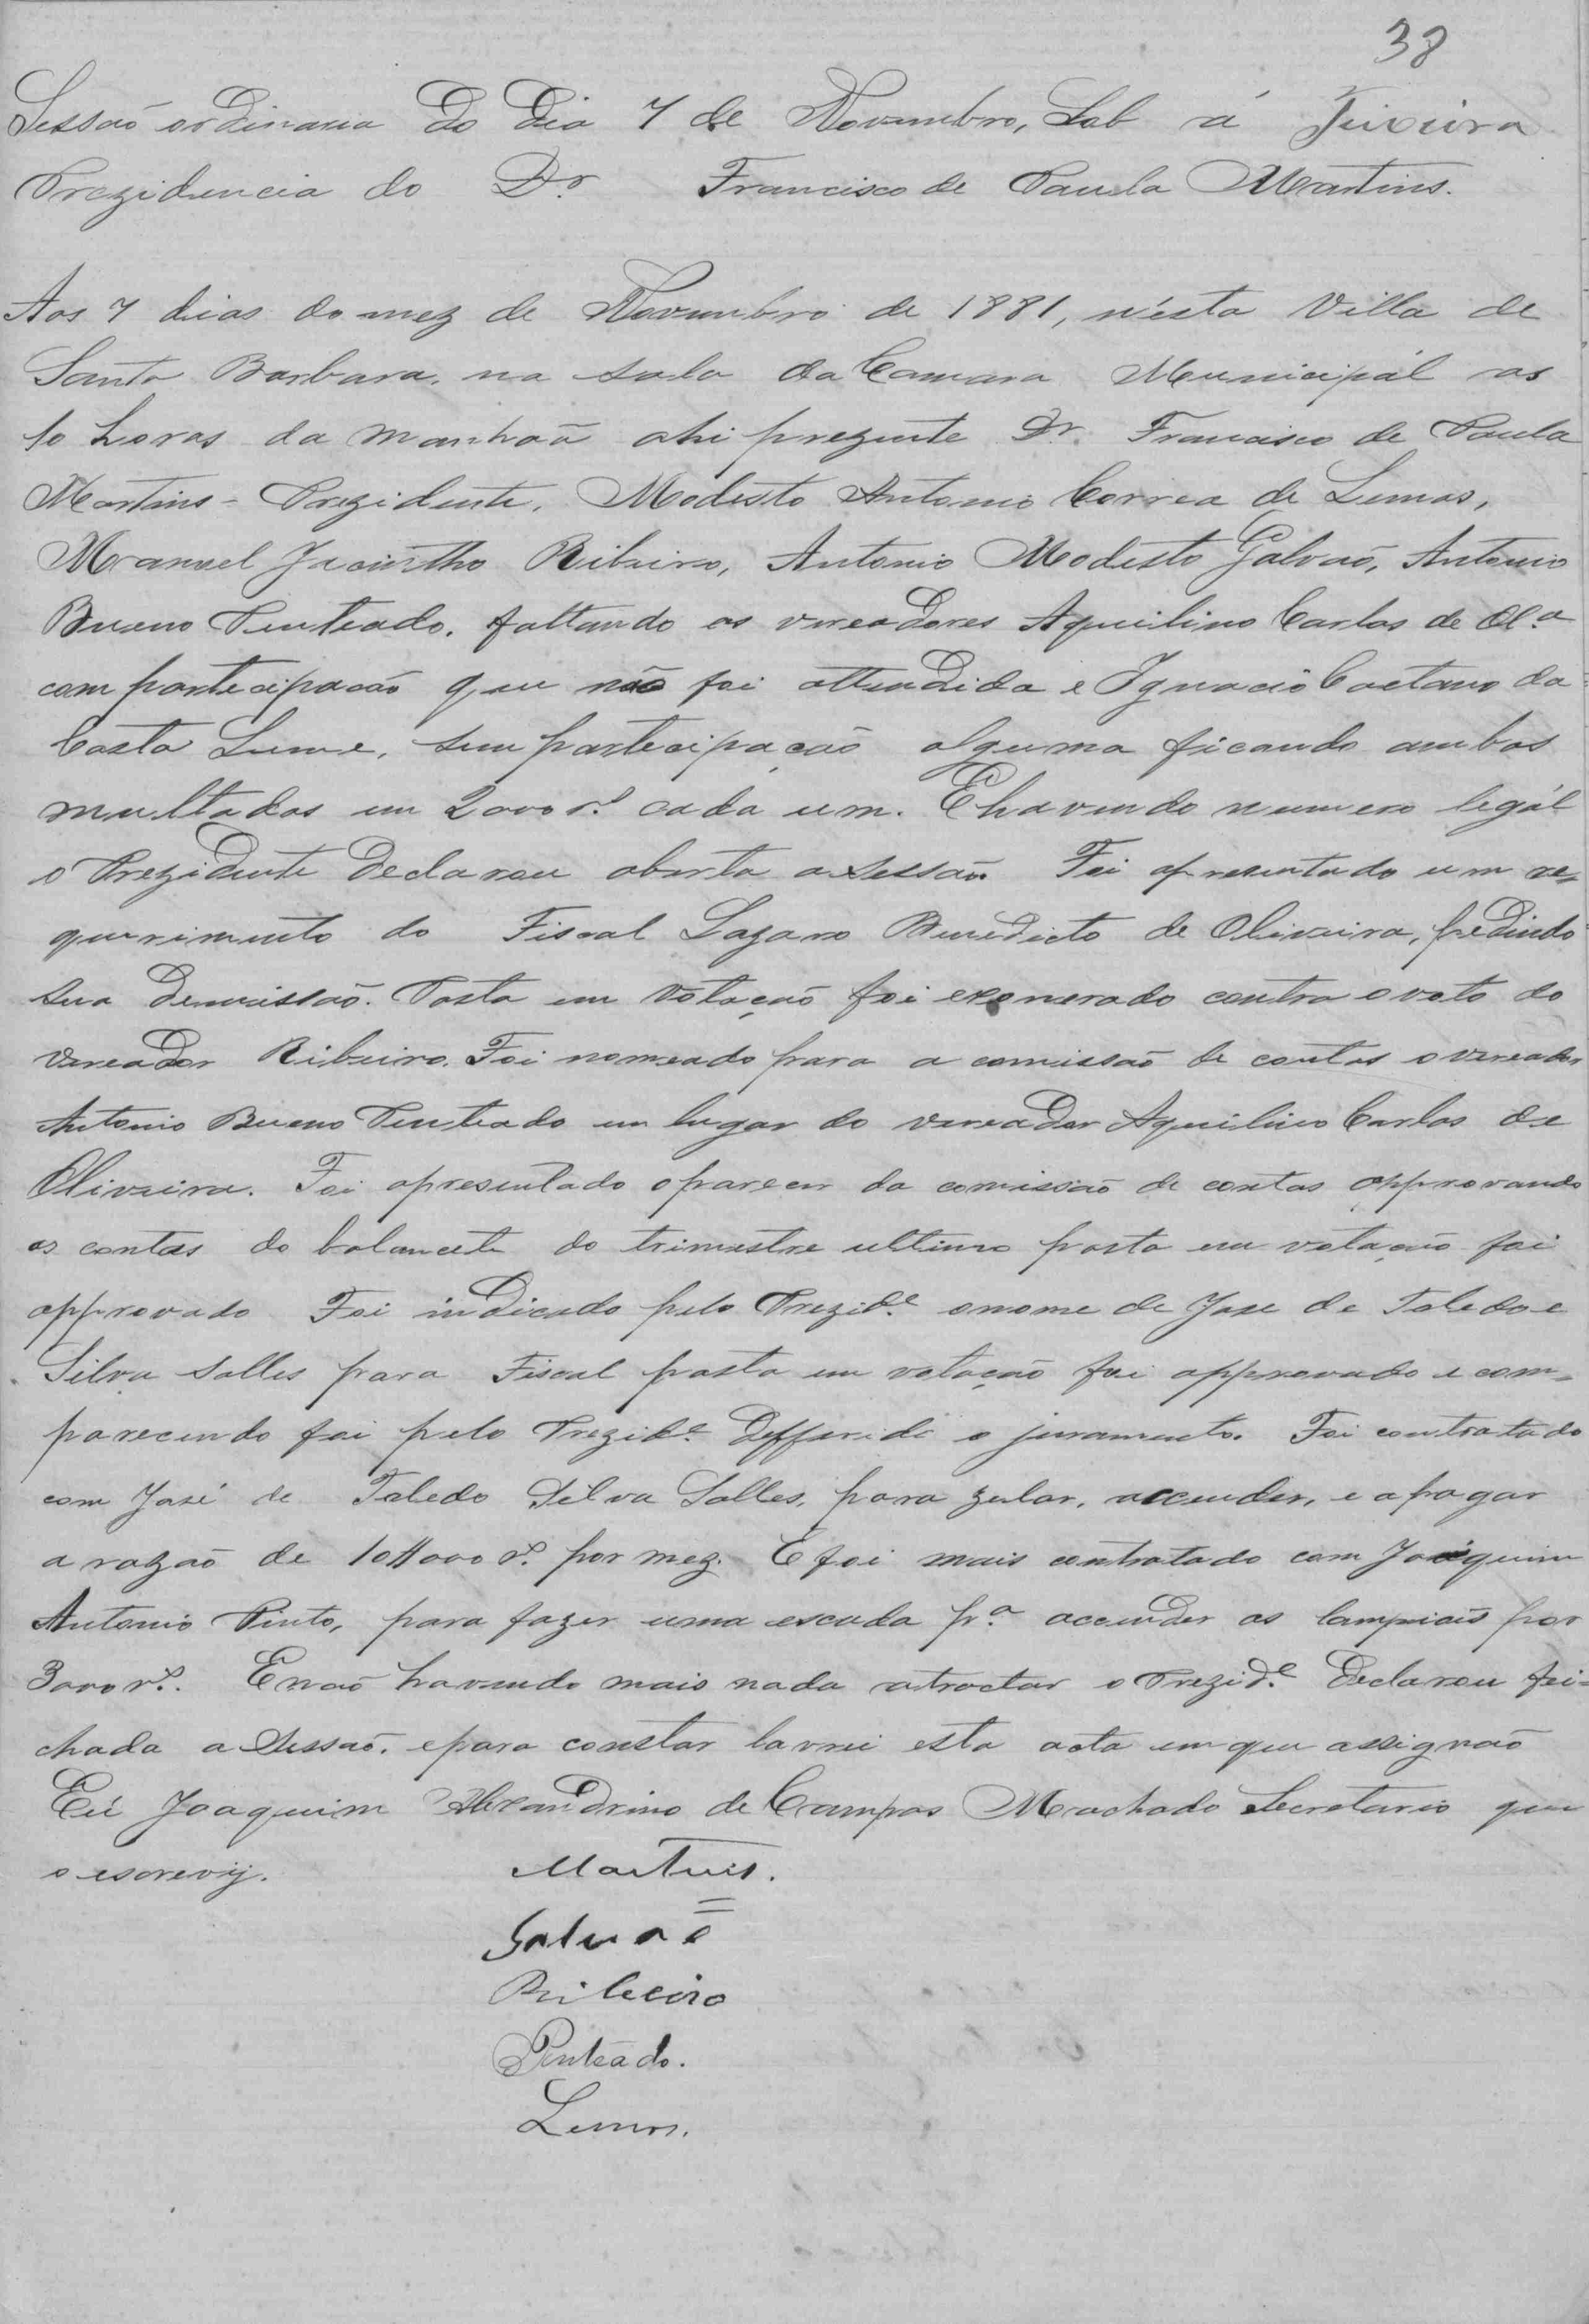 38
Sessaõ ordinaria do dia 7 de Novembro, Sob á Teixeira
Prezidencia do Dr. Francisco de Paula Martins.
Aos 7 dias do mez de Novembro de 1881, n'esta Villa de
Santa Barbara, na sala da Camara Municipál as
10 horas da manhaã ahi prezente Dr. Francisco de Paula
Martins - Prezidente, Modesto Antonio Correa de Lemos,
Manuel Jacintho Ribeiro, Antonio Modesto Galvaõ, Antonio
Bueno Penteado, faltando os vereadores Aquilino Carlos de Olª
com partecipacaõ que naõ foi attendida e Ignacio Caetano da
Costa Leme, sem partecipaçaõ alguma ficando ambos
multados em 2000 rs. cada um. E havendo numero legál
o Prezidente declarou aberta a sessaõ. Foi apresentado um re=
querimento do Fiscal Lazaro Benedicto de Oliveira, pedindo
sua demissaõ. Posta em votaçaõ foi exonerado contra o voto do
vereador Ribeiro. Foi nomeado para a comissaõ de contas o vereador
Antonio Bueno Penteado em lugar do vereador Aquilino Carlos de
Oliveira. Foi apresentado o parecer da comissaõ de contas approvando
as contas do balancete do trimestre ultimo posto em votaçaõ foi
approvado Foi indicado pelo Prezide. o nome de Jose de Toledo e
Silva Salles para Fiscal posta em votaçaõ foi approvado e com=
parecendo foi pelo Prezide. defferido o juramento. Foi contratado
com José de Toledo Silva Salles, para zelar, accender, e apagar
a razaõ de 10#000 rs. por mez. E foi mais contratado com Joaquim
Antonio Pinto, para fazer uma escada pª accender os lampiaõs por
3000 rs. E naõ havendo mais nada a tractar o Prezide. declarou fei=
chada a Sessaõ. e para constar lavrei esta acta em que assignaõ
Eu Joaquim Alexandrino de Campos Machado Secretario que
o escrevij. Martins.
Galvaõ
Ribeiro
Penteado.
Lemos.